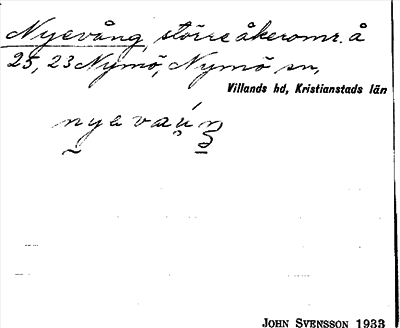 Nyevång, större åkeromr. å
25, 23 Nymö, Nymö sn,
Villands hd, Kristianstads län
nyevaúŋ
JOHN SVENSSON 1933